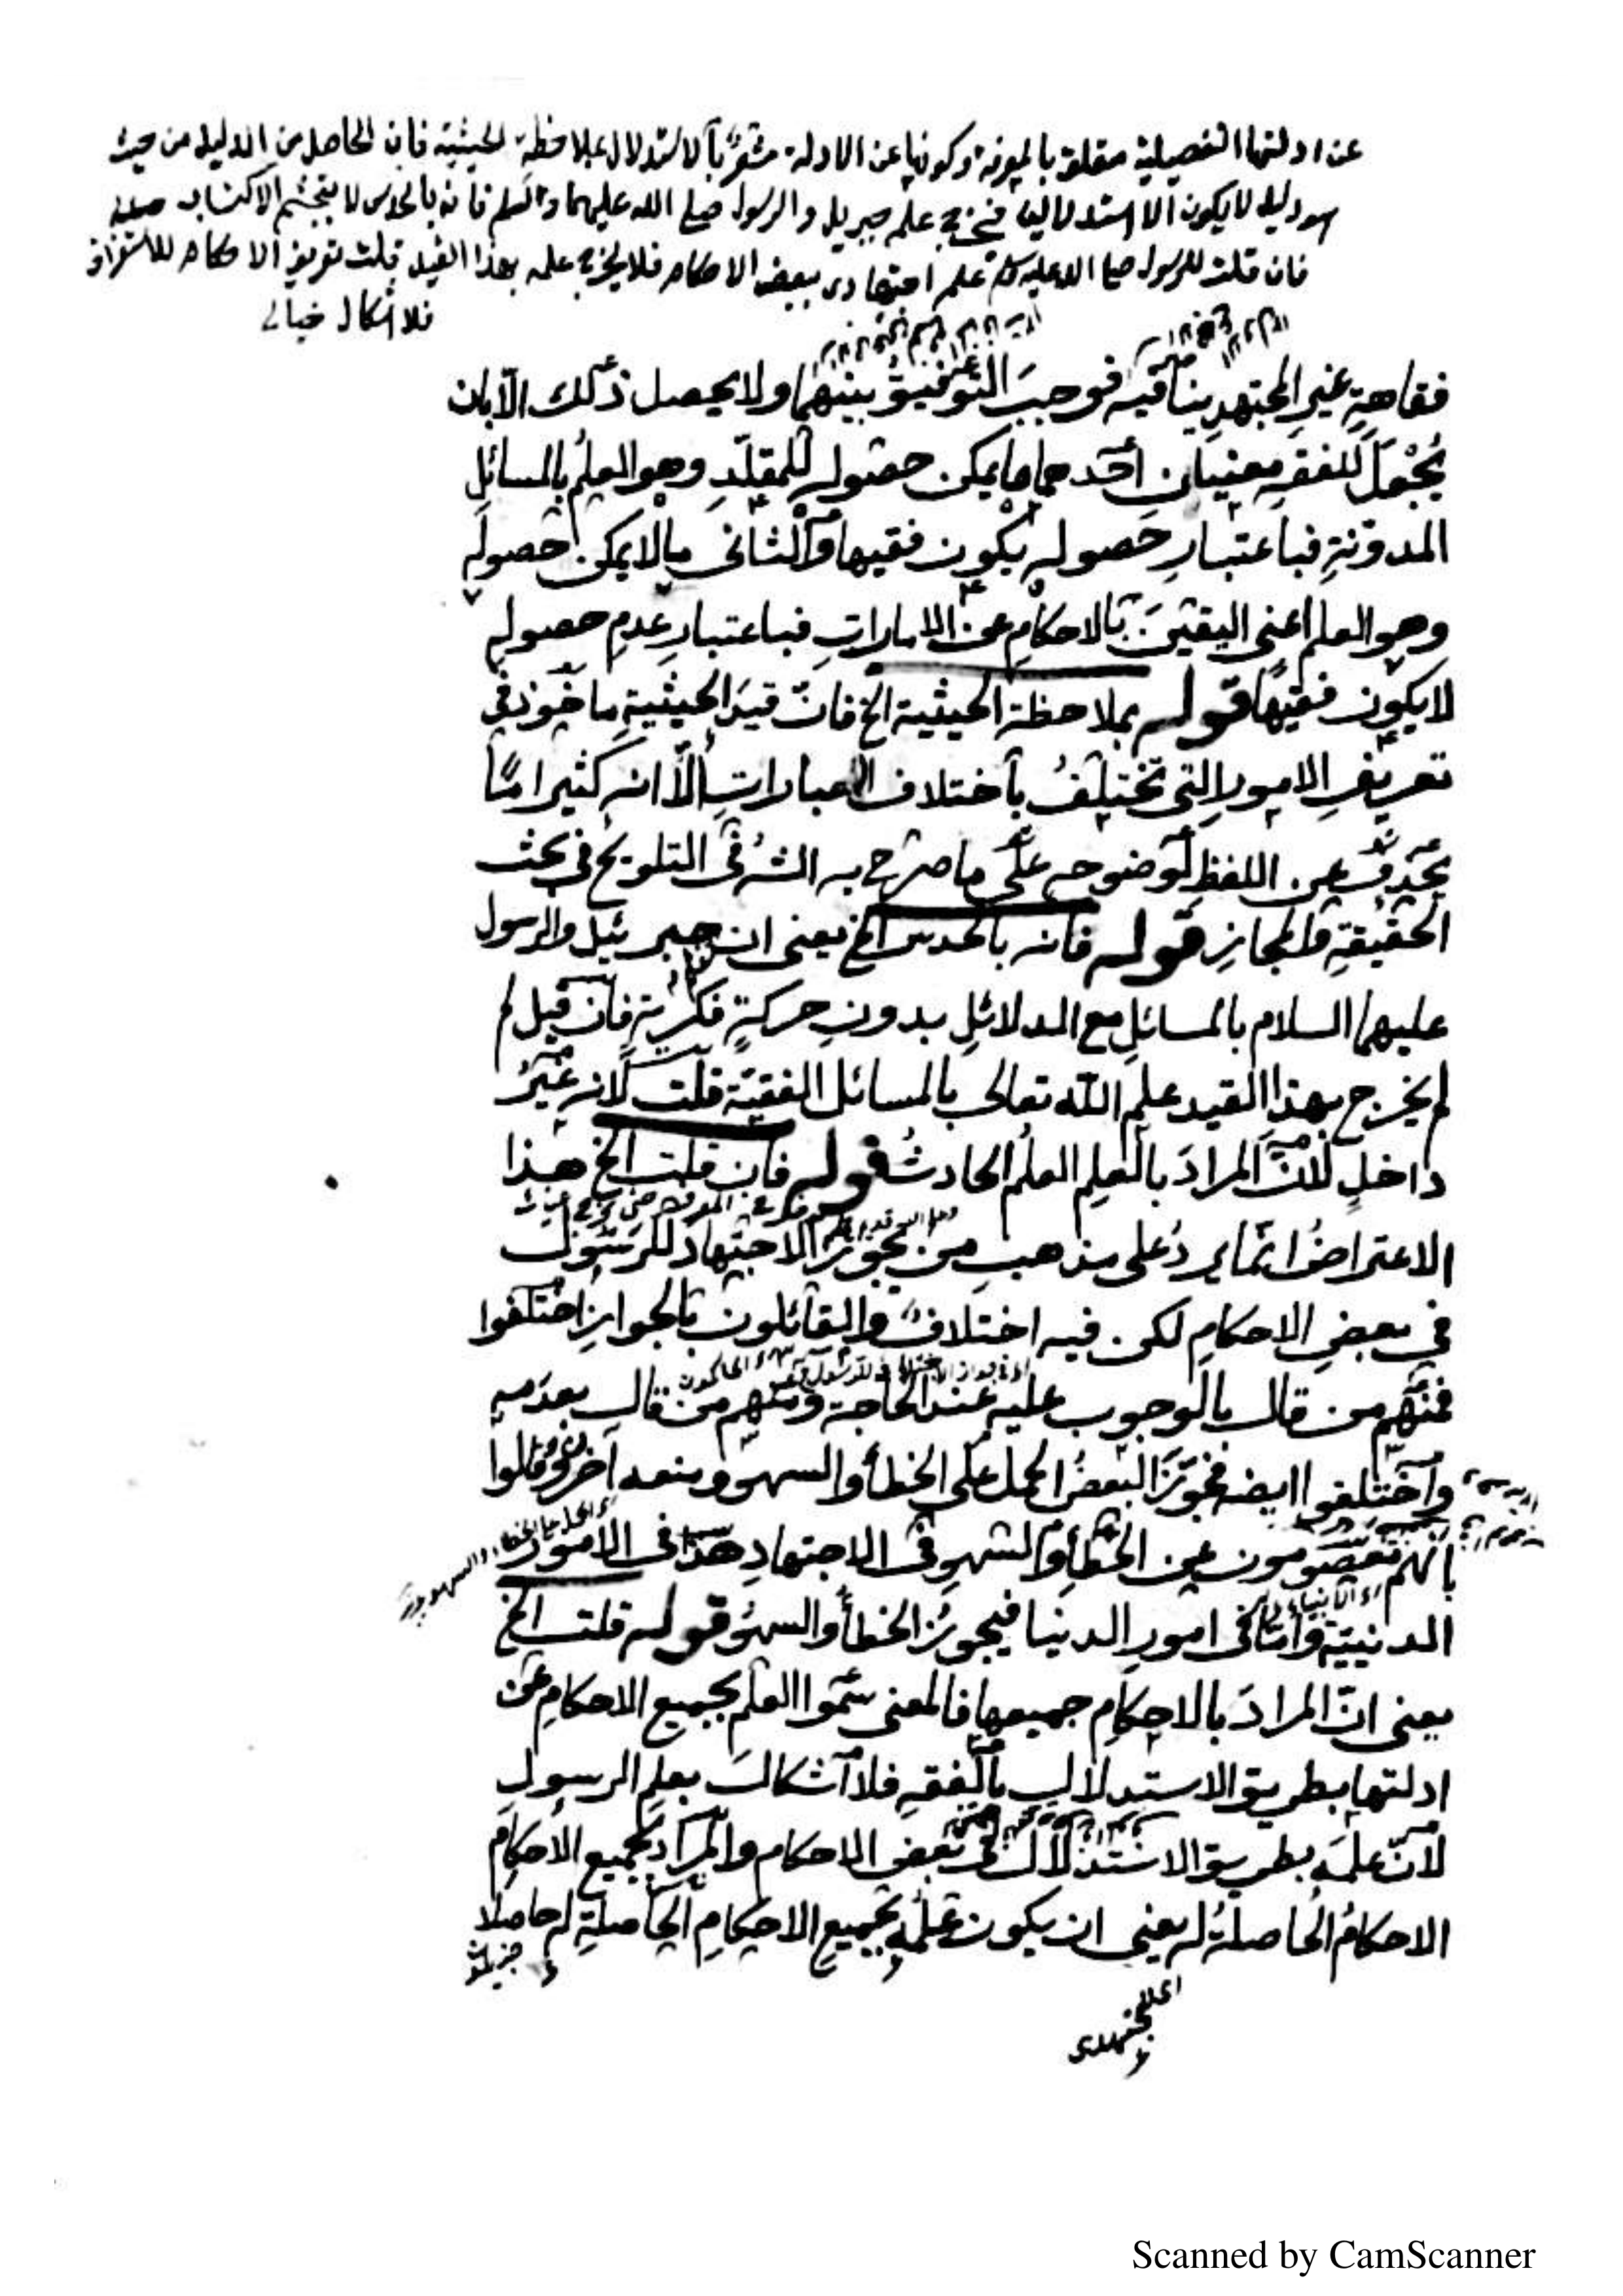 عن ادلتها التفصيلية متعلق بالمعرفة وكونها عن الادلة مشعر بالاستدلال بملاحظة الحيثية فان الحاصل من الدليل من حيث
هو دليل لا يكون الا استدلاليا فخرج علم جبريل والرسول صلى الله عليهما وسلم فانه بالحدس لا بتجشم الاكتساب
فان قلت للرسول صلى الله عليه وسلم علم اجتهادى ببعض الاحكام فلا يخرج علمه بهذا القيد قلت تعريف الاحكام للاستغراق
فلا اشكال خيالى
فقاهةِ غيرِ المجتهدِ ينافيه فوجبَ التوفيقُ بينهما ولا يحصل ذلك الّا بان
يُجْعَلَ للفقهِ معنيانِ احدهما ما يمكن حصوله للمقلّدِ وهو العلمُ بالمسائلِ
المدوّنةِ فباعتبارِ حصولهِ يكون فقيها والثانى ما لا يمكن حصولُه
وهو العلم اعنى اليقينَ بالاحكامِ عن الاماراتِ فباعتبارِ عدمِ حصولهِ
لا يكون فقيهًا قوله بملاحظة الحيثية الخ فانّ قيدَ الحيثيةِ ماخوذ فى
تعريفِ الامورِ التى تختلفُ باختلاف العباراتِ الّا انه كثيرا مّا
يحذف عن اللفظِ لوضوحه على ما صرّح به الشرُ فى التلويح فى بحث
الحقيقةِ والمجازِ قوله فانه بالحدس الخ يعنى ان جبرئيل والرسول
عليهما السلام بالمسائلِ مع الدلائلِ بدونِ حركةٍ فكريّةٍ فان قيل لم
لم يخرج بهذا القيد علم اللّه تعالى بالمسائل الفقهيّة قلت لانه غيرُ
داخلٍ لانّ المرادَ بالعلمِ العلمُ الحادثُ قوله فان قلت الخ هذا
الاعتراضُ انّما يردُ على مذهبِ من يجوّز الاجتهادَ للرسول
فى بعضِ الاحكامِ لكن فيه اختلافٌ والقائلون بالجوازِ اختلفوا
فمنهم من قال بالوجوب عليه عند الحاجة ومنهم من قال بعدمه
واختلفوا ايضه فجوّز البعضُ الحملَ على الخطأ والسهو ومنعه آخرون وقالوا
بانّهم معصومون عن الخطأِ والسهوِ فى الاجتهادِ هذا فى الامور
الدينيّة وأمّا فى امورِ الدنيا فيجوزُ الخطأُ والسهوُ قوله قلت الخ
يعنى انّ المرادَ بالاحكامِ جميعها فالمعنى سمّوا العلم بجميع الاحكامِ عن
ادلتها بطريق الاستدلالِ بالفقهِ فلا اشكالَ بعلمِ الرسولِ
لانّ علمَه بطريق الاستدلالِ فى بعض الاحكام والمراد بجميع الاحكام
الاحكامُ الحاصلةُ له يعنى ان يكون علمُه بجميعِ الاحكامِ الحاصلةِ له حاصلا
Scanned by CamScanner